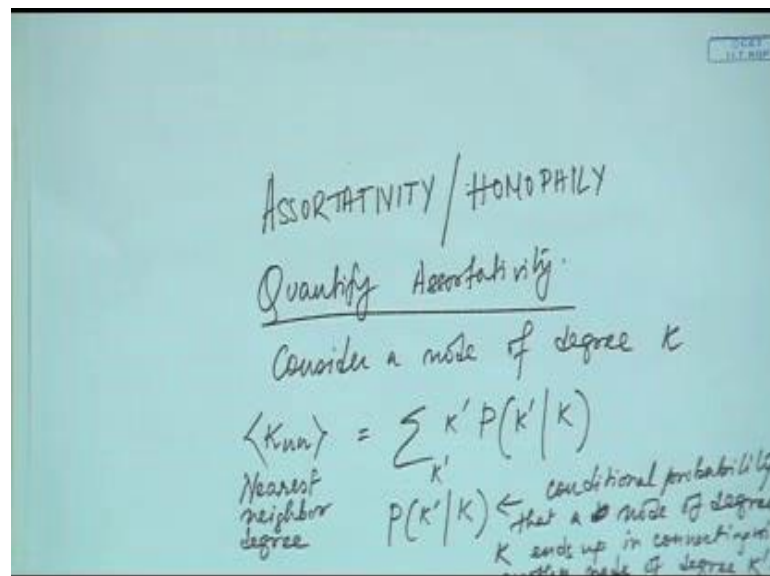 ASSORTATIVITY / HOMOPHILY
Quantify Assortativity.
Consider a node of degree K
⟨Knn⟩ = ∑K' K' P(K'|K)
Nearest
neighbor
degree
P(K'|K) ← conditional probability
that a node of degree
K ends up in connecting
another node of degree K'